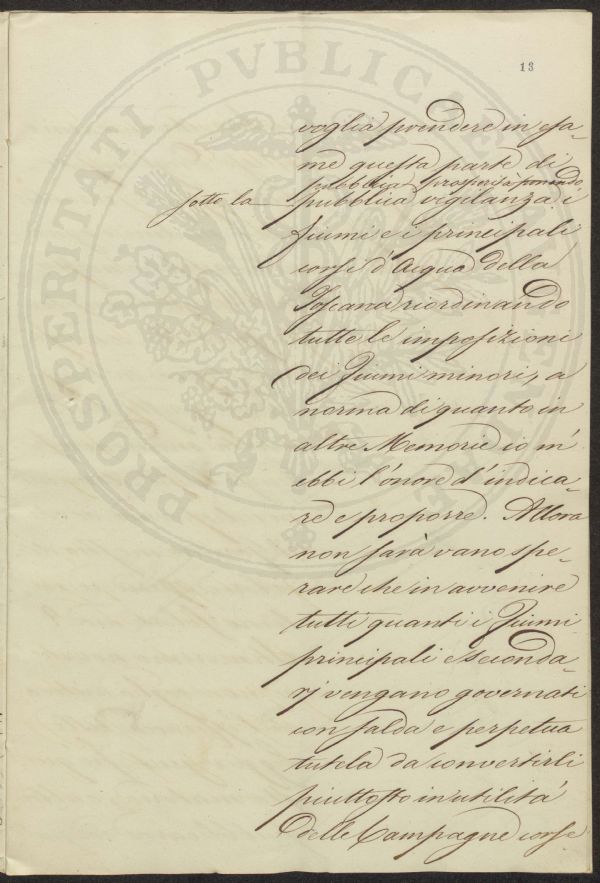 13
voglia prendere in esa-
me questa parte di
pubblica prosperità ponendo
sotto la pubblica vigilanza i
fiumi e i principali
corsi d'Acqua della
Toscana riordinando
tutte le imposizioni
dei Fiumi minori, a
norma di quanto in
altre Memorie io m'
ebbi l'onore d'indica-
re e proporre. Allora
non sarà vano spe-
rare che in avvenire
tutti quanti i Fiumi
principali e seconda-
rj vengano governati
con salda e perpetua
tutela da convertirli
piuttosto in utilità
delle Campagne corse
PROSPERITATI PVBLICAE